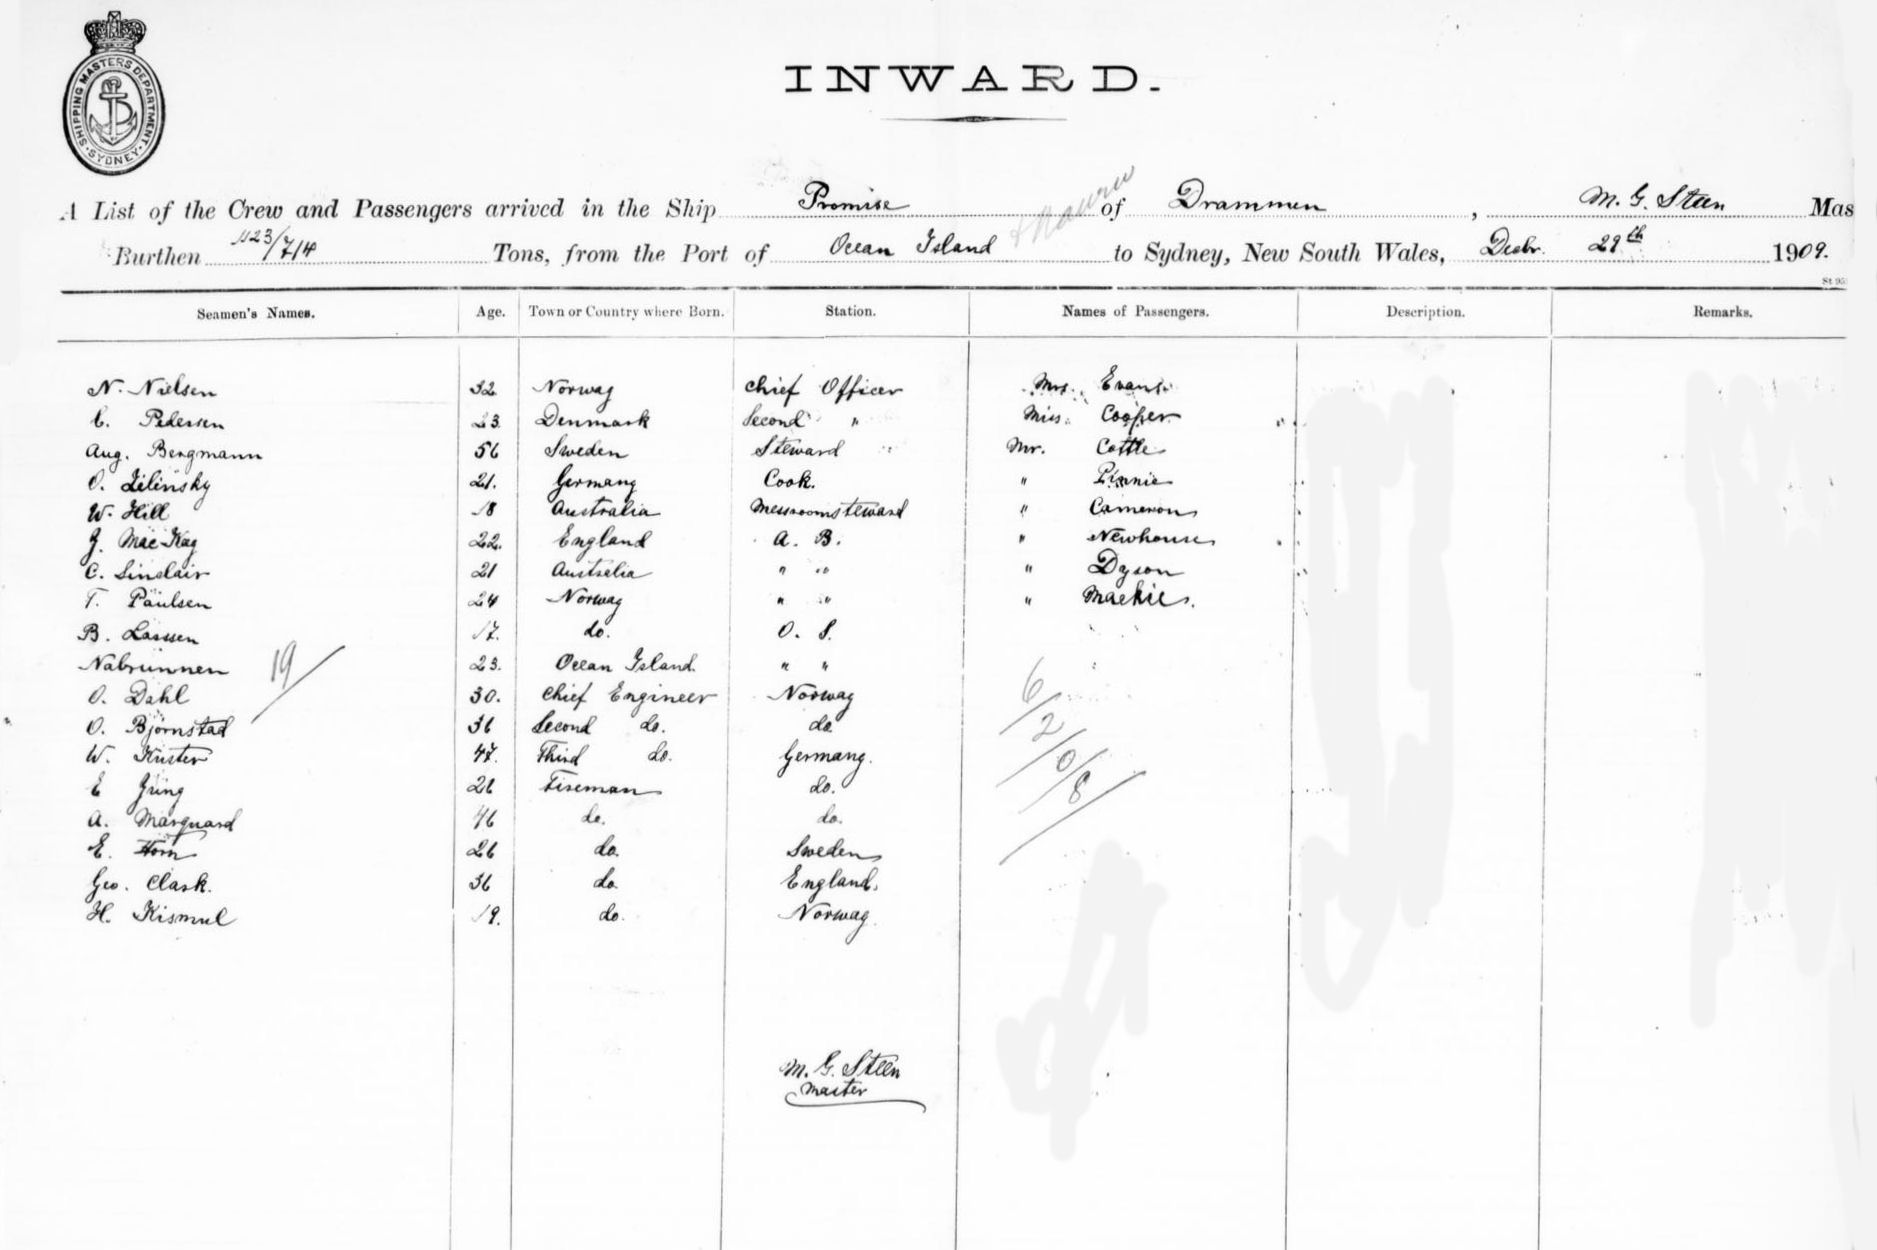 SHIPPING MASTERS DEPARTMENT. SYDNEY
INWARD.
A List of the Crew and Passengers arrived in the Ship Promise of Drammen, M. G. Steen Mas
& Nauru
Burthen 1123/714 Tons, from the Port of Ocean Island to Sydney, New South Wales, Decbr. 29th 1909.
Seamen's Names. Age. Town or Country where Born. Station. Names of Passengers. Description. Remarks.
N. Nielsen 32 Norway Chief Officer Mrs. Evans
C. Pedersen 23. Denmark Second " Miss. Cooper
Aug. Bergmann 56 Sweden Steward Mr. Cottle
O. Zilinsky 21. Germany Cook. "
W. Hill 18 Australia Messroomsteward " Cameron
J. Mac Kay 22. England A. B. " Newhouse
C. Sinclair 21 Australia " " " Dyson
T. Paulsen 24 Norway " " " Mackie.
B. Larssen 17. do. O. S.
Nabrunnen 23. Ocean Island. " "
19/
O. Dahl 30. Chief Engineer Norway
O. Björnstad 36 Second do. do.
W. Küster 47. Third do. Germany.
E 26 Fireman do.
A. Marquard 46 do. do.
E. Horn 26 do. Sweden
Geo. Clark. 36 do. England.
H. Kismul 19. do. Norway.
6/2/0/8/
M. G. Steen
Master